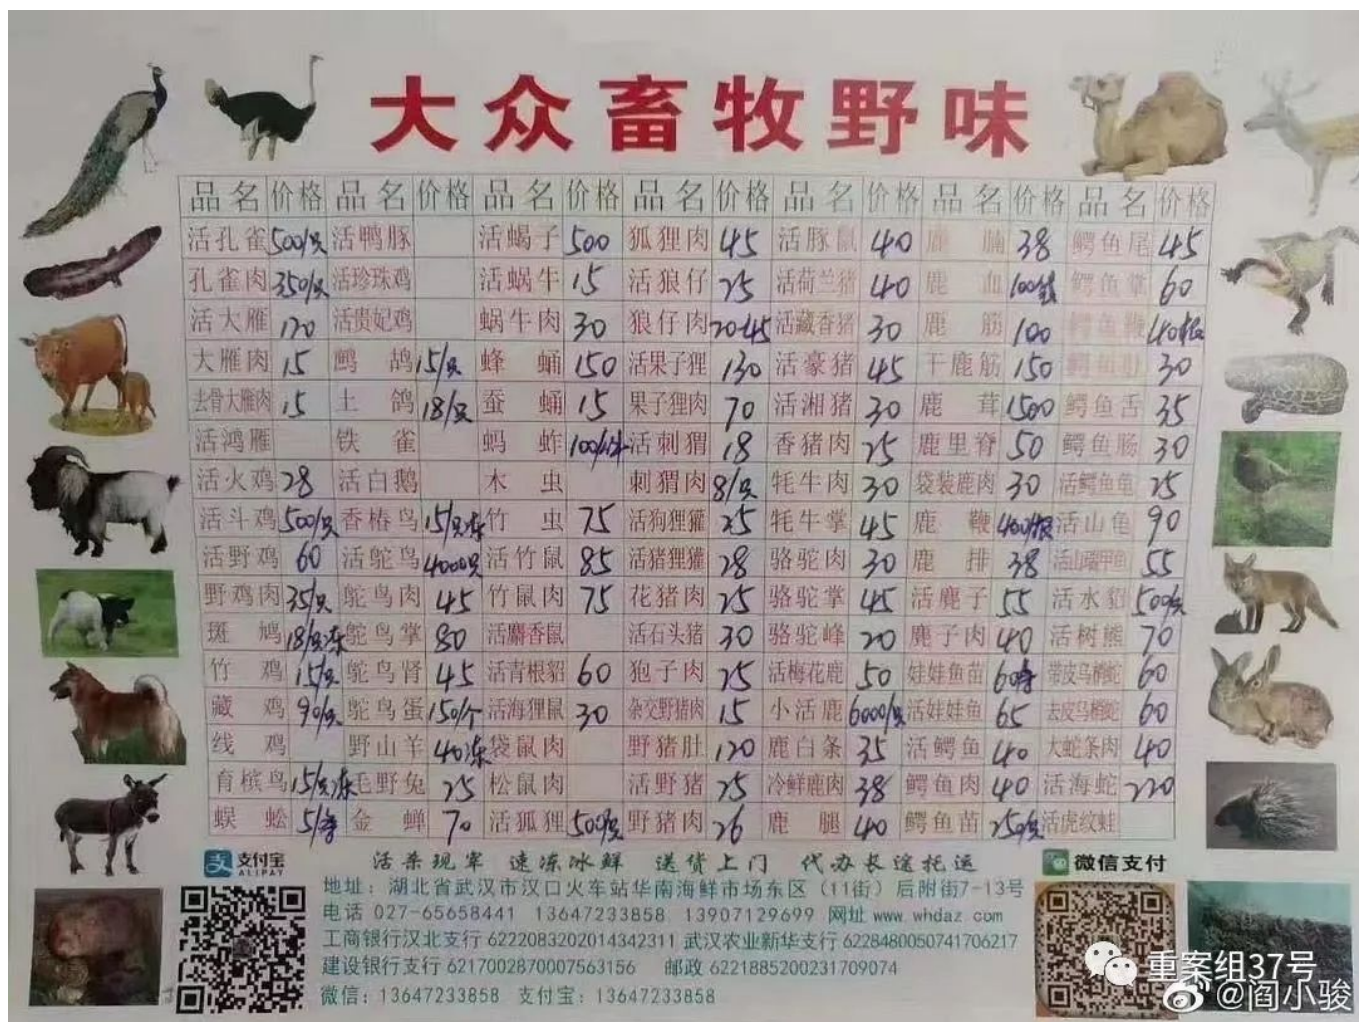 大众畜牧野味
品名 价格 品名 价格 品名 价格 品名 价格 品名 价格 品名 价格 品名 价格
活孔雀 500/只 活鸭豚 活蝎子 500 狐狸肉 45 活豚鼠 40 鹿腩 38 鳄鱼尾 45
孔雀肉 350/只 活珍珠鸡 活蜗牛 15 活狼仔 25 活荷兰猪 40 鹿血 鳄鱼掌 60
活大雁 120 活贵妃鸡 蜗牛肉 30 狼仔肉 20-45 活藏香猪 30 鹿筋 100 鳄鱼鞭 40/根
大雁肉 15 鹧鸪 15/只 蜂蛹 150 活果子狸 130 活豪猪 45 干鹿筋 150 鳄鱼肚 30
去骨大雁肉 15 土鸽 18/只 蚕蛹 15 果子狸肉 70 活湘猪 30 鹿茸 1500 鳄鱼舌 35
活鸿雁 铁雀 蚂蚱 活刺猬 18 香猪肉 25 鹿里脊 50 鳄鱼肠 30
活火鸡 28 活白鹅 木虫 刺猬肉 8/只 牦牛肉 30 袋装鹿肉 30 活鳄鱼龟 25
活斗鸡 500/只 香椿鸟 15/只冻 竹虫 75 活狗狸獾 25 牦牛掌 45 鹿鞭 400/根 活山龟 90
活野鸡 60 活鸵鸟 4000只 活竹鼠 85 活猪狸獾 28 骆驼肉 30 鹿排 38 活山瑞甲鱼 55
野鸡肉 35/只 鸵鸟肉 45 竹鼠肉 75 花猪肉 25 骆驼掌 45 活麂子 55 活水貂 500/只
斑鸠 18/只冻 鸵鸟掌 80 活麝香鼠 活石头猪 30 骆驼峰 20 麂子肉 40 活树熊 70
竹鸡 15/只 鸵鸟肾 45 活青根貂 60 狍子肉 25 活梅花鹿 50 娃娃鱼苗 带皮乌梢蛇 60
藏鸡 90/只 鸵鸟蛋 150/个 活海狸鼠 30 杂交野猪肉 15 小活鹿 6000/只 活娃娃鱼 65 去皮乌梢蛇 60
线鸡 野山羊 40冻 袋鼠肉 野猪肚 120 鹿白条 35 活鳄鱼 40 大蛇条肉 40
育槟鸟 15/只冻 毛野兔 25 松鼠肉 活野猪 25 冷鲜鹿肉 38 鳄鱼肉 40 活海蛇 220
蜈蚣 金蝉 70 活狐狸 500/只 野猪肉 26 鹿腿 40 鳄鱼苗 250/只 活虎纹蛙
支付宝
ALIPAY
活杀现宰 速冻冰鲜 送货上门 代办长途托运
微信支付
地址：湖北省武汉市汉口火车站华南海鲜市场东区（11街）后附街7-13号
电话 027-65658441 13647233858 13907129699 网址 www.whdaz com
工商银行汉北支行 6222083202014342311 武汉农业新华支行 6228480050741706217
建设银行支行 6217002870007563156 邮政 6221885200231709074
微信：13647233858 支付宝：13647233858
重案组37号
@阎小骏